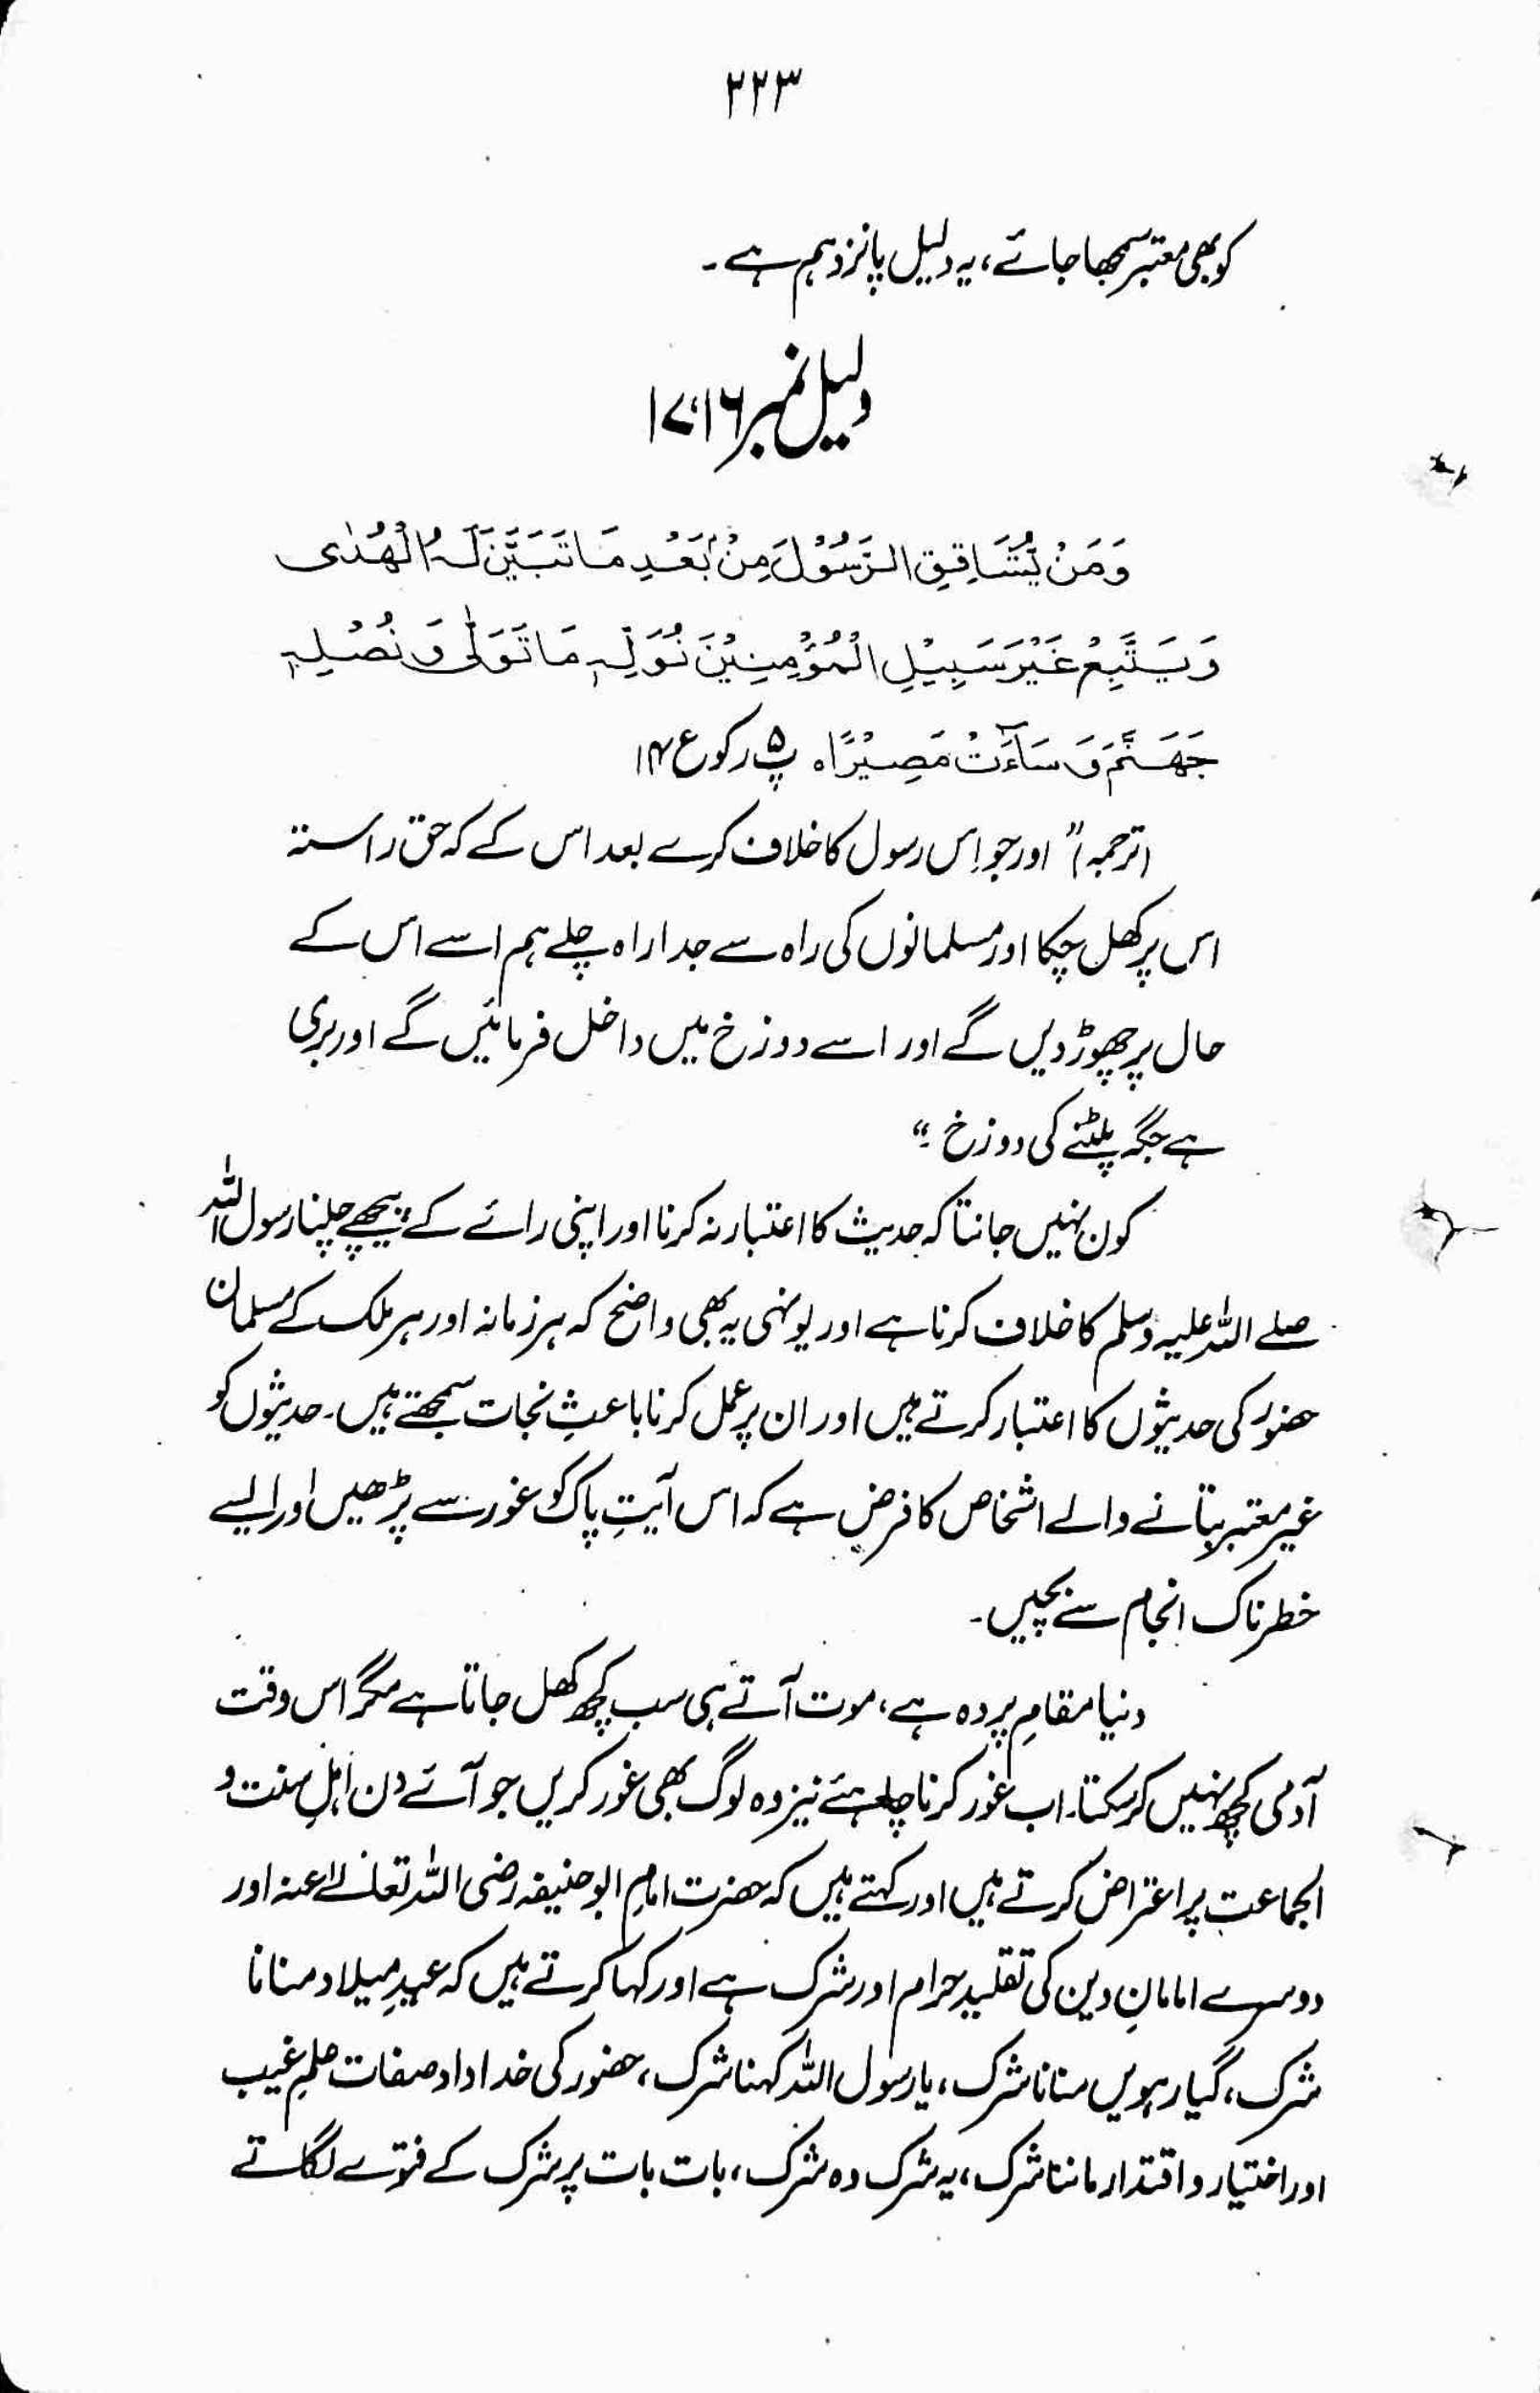 ۲۲۳
کو بھی معتبر سمجھا جائے، یہ دلیل پانزدہم ہے۔
دلیل نمبر ۱۶، ۱۷
وَمَنْ يُّشَاقِقِ الرَّسُوْلَ مِنْۢ بَعْدِ مَا تَبَيَّنَ لَهُ الْهُدٰى
وَيَتَّبِعْ غَيْرَ سَبِيْلِ الْمُؤْمِنِيْنَ نُوَلِّهٖ مَا تَوَلّٰى وَنُصْلِهٖ
جَهَنَّمَ وَسَآءَتْ مَصِيْرًا ہ پ ۵ رکوع ۱۴
(ترجمہ) ”اور جو اس رسول کا خلاف کرے بعد اس کے کہ حق راستہ
اس پر کھل چکا اور مسلمانوں کی راہ سے جدا راہ چلے ہم اسے اس کے
حال پر چھوڑ دیں گے اور اسے دوزخ میں داخل فرمائیں گے اور بری
ہے جگہ پلٹنے کی دوزخ ؛“
کون نہیں جانتا کہ حدیث کا اعتبار نہ کرنا اور اپنی رائے کے پیچھے چلنا رسول اللہ
صلے اللہ علیہ وسلم کا خلاف کرنا ہے اور یونہی یہ بھی واضح کہ ہر زمانہ اور ہر ملک کے مسلمان
حضور کی حدیثوں کا اعتبار کرتے ہیں اور ان پر عمل کرنا باعثِ نجات سمجھتے ہیں۔ حدیثوں کو
غیر معتبر بتانے والے اشخاص کا فرض ہے کہ اس آیتِ پاک کو غور سے پڑھیں اور ایسے
خطرناک انجام سے بچیں۔
دنیا مقامِ پردہ ہے، موت آتے ہی سب کچھ کھل جاتا ہے مگر اس وقت
آدمی کچھ نہیں کر سکتا۔ اب غور کرنا چاہئے نیز وہ لوگ بھی غور کریں جو آئے دن اہلِ سنت و
الجماعت پر اعتراض کرتے ہیں اور کہتے ہیں کہ حضرت امامِ ابو حنیفہ رضی اللہ تعالےٰ عنہ اور
دوسرے امامانِ دین کی تقلید حرام اور شرک ہے اور کہا کرتے ہیں کہ عیدِ میلاد منانا
شرک، گیارہویں منانا شرک، یا رسول اللہ کہنا شرک، حضور کی خداداد صفات علمِ غیب
اور اختیار و اقتدار ماننا شرک، یہ شرک وہ شرک، بات بات پر شرک کے فتوے لگاتے